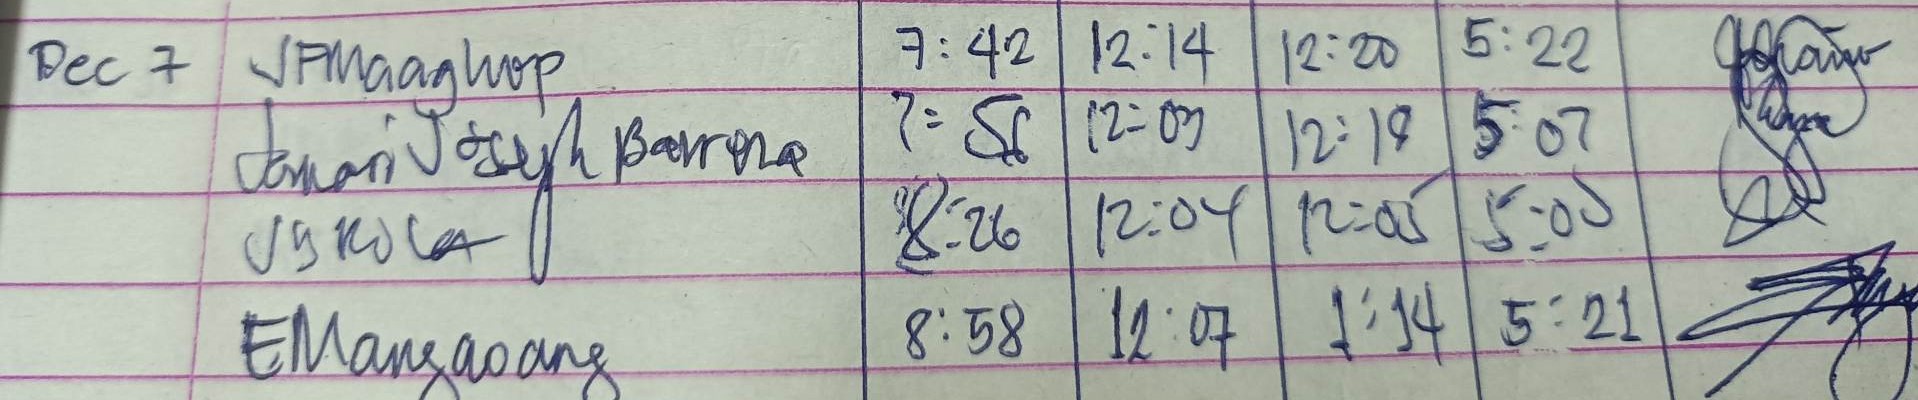 Dec 7 JFMaaghop 7:42 12:14 12:20 5:22
Jomari Joseph Barrona 7:56 12:03 12:19 5:07
8:26 12:04 12:05 5:00
EMangaoang 8:58 12:07 1:14 5:21